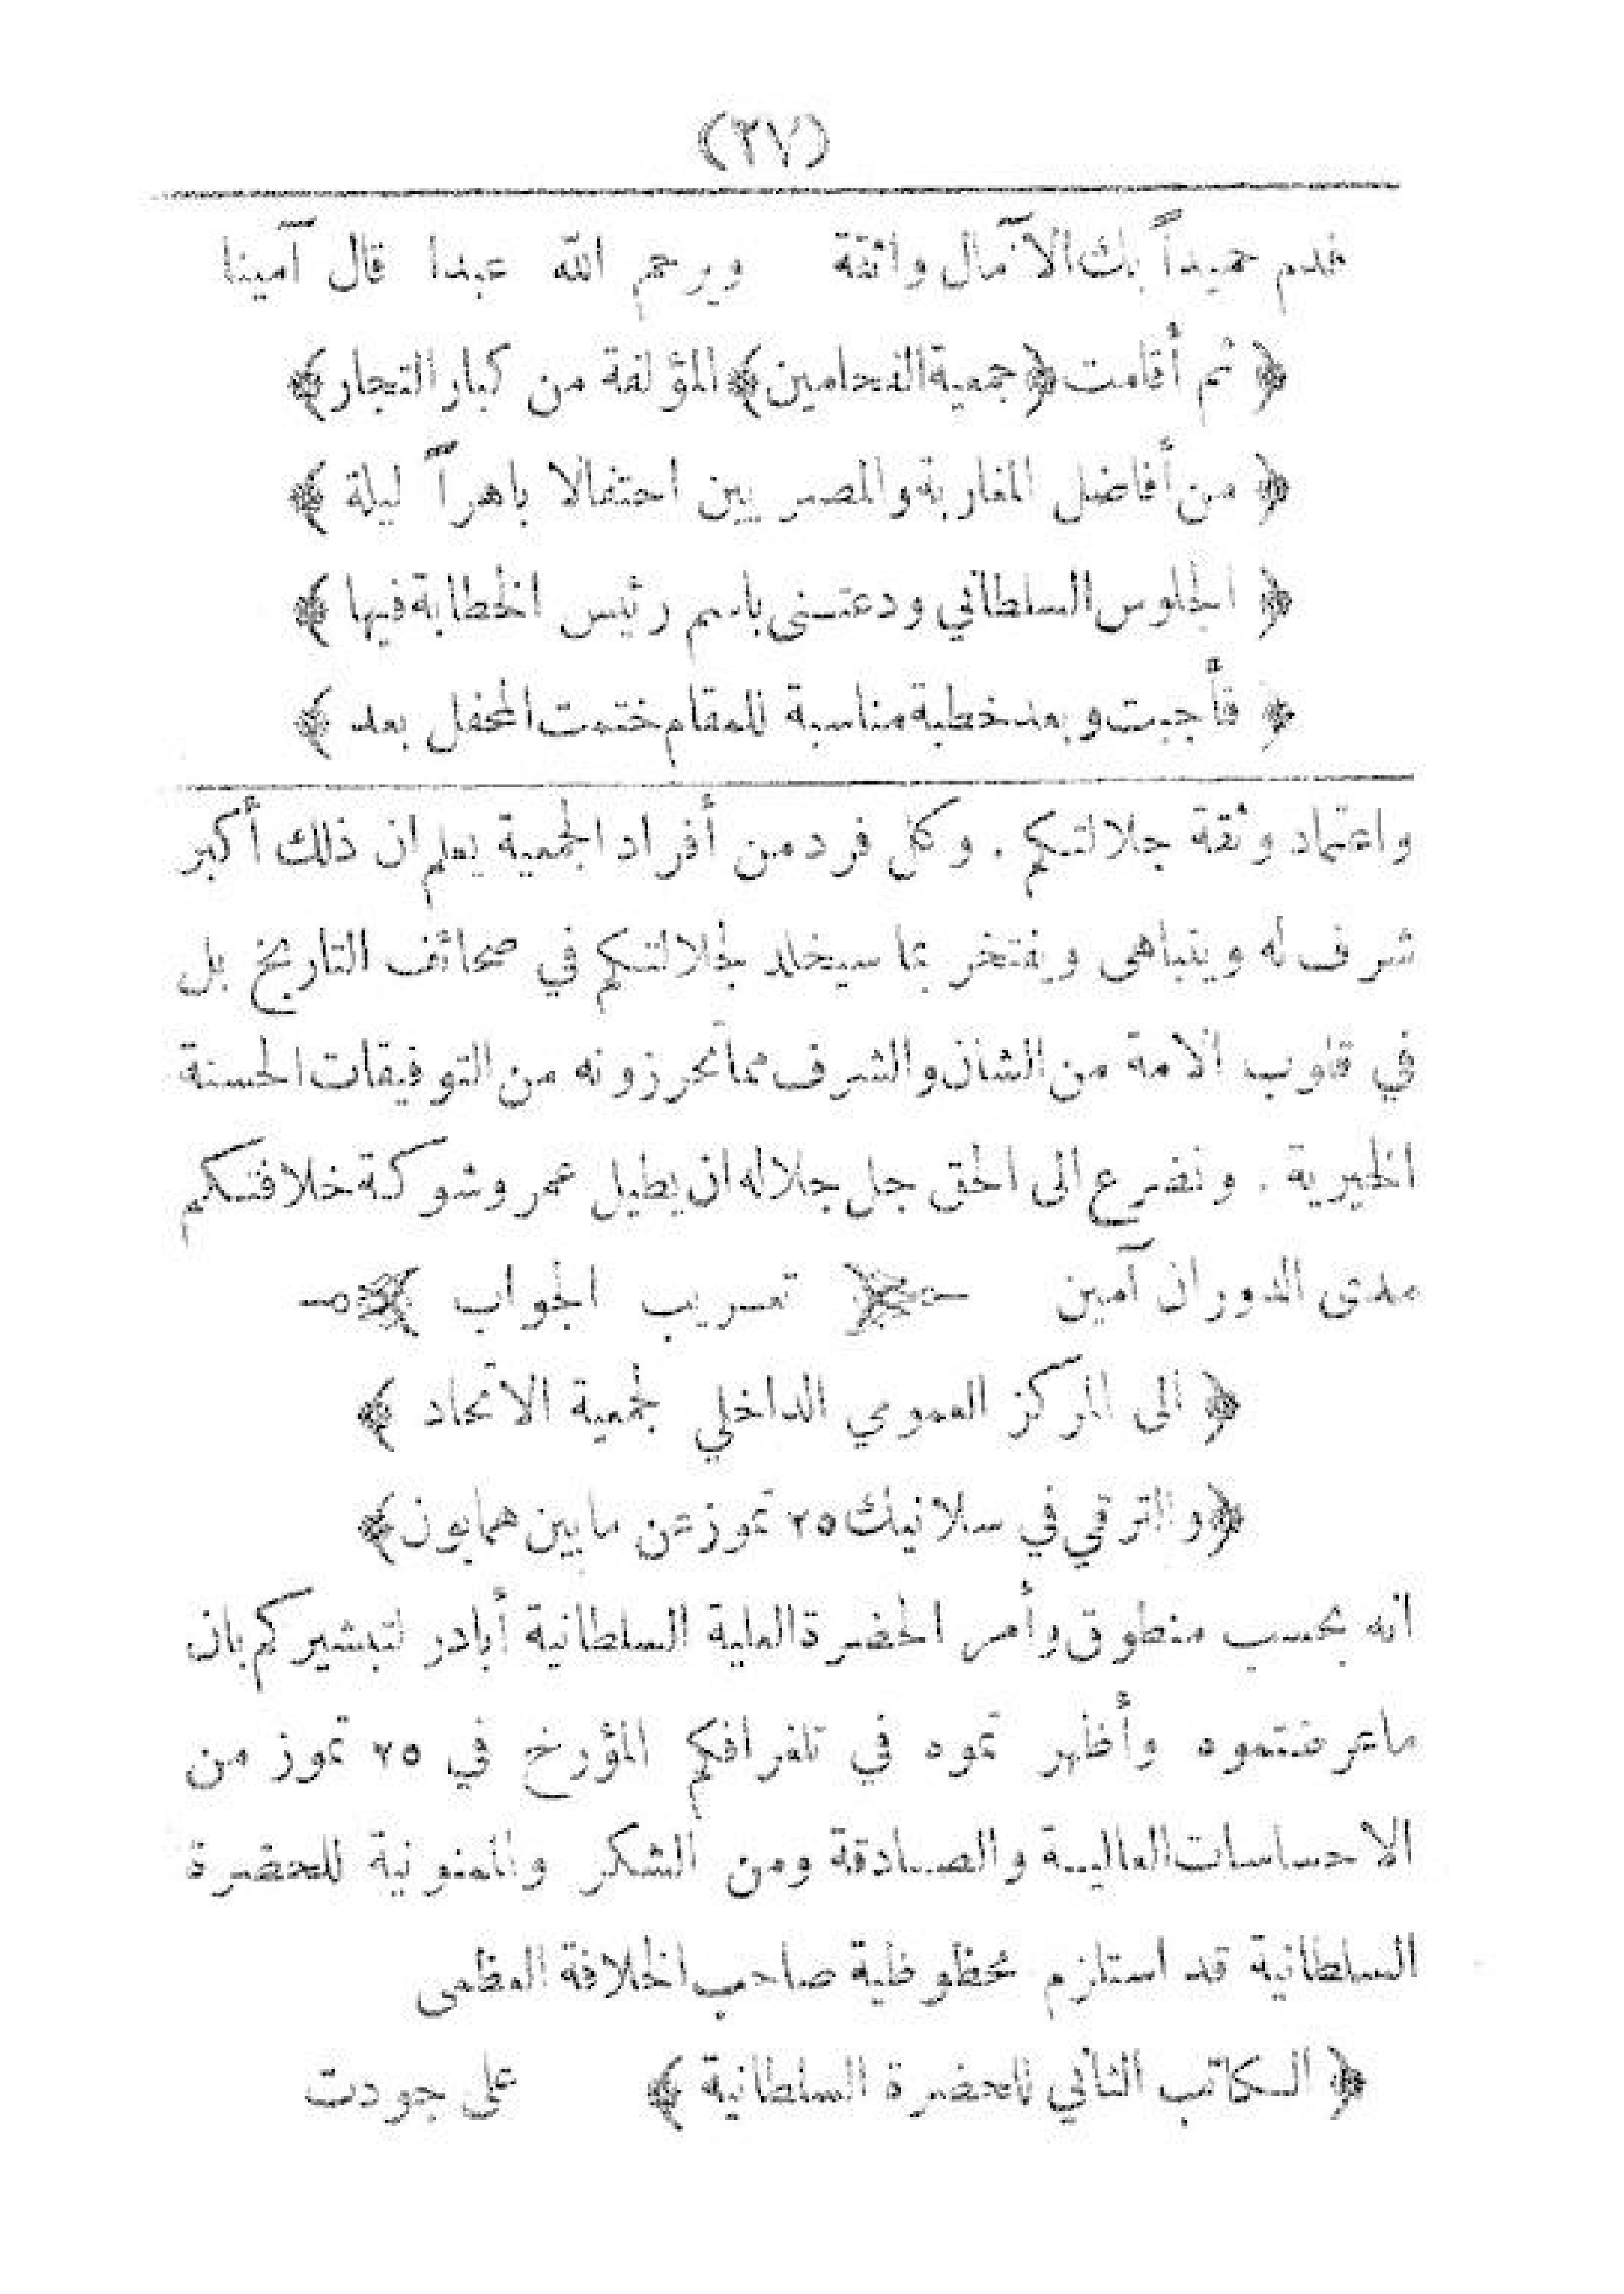 (٢٧)
فدم حميداً بك الآمال واثقة ويرحم الله عبدا قال آمينا
﴿ ثم أقامت ﴿جمعية الفحامين﴾ المؤلفة من كبار التجار﴾
﴿ من أفاضل المغاربة والمصريين احتفالا باهراً ليلة ﴾
﴿ الجلوس السلطاني ودعتنى باسم رئيس الخطابة فيها ﴾
﴿ فأجبت وبعد خطبة مناسبة للمقام ختمت المحفل بعد ﴾
واعتماد وثقة جلالتكم . وكل فرد من أفراد الجمعية يعلم ان ذلك أكبر
شرف له ويتباهى ويفتخر بما سيخلد لجلالتكم في صحائف التاريخ بل
في قلوب الامة من الشان والشرف مما تحرزونه من التوفيقات الحسنة
الخيرية . ونضرع الى الحق جل جلاله ان يطيل عمر وشوكة خلافتكم
مدى الدوران آمين ﴿ تعريب الجواب ﴾
﴿ الى المركز العمومي الداخلي لجمعية الاتحاد ﴾
﴿والترقي في سلانيك ٢٥ تموز عن مابين همايون﴾
انه بحسب منطوق وأمر الحضرة العلية السلطانية أبادر لتبشيركم بان
ماعرضتموه وأظهرتموه في تلغرافكم المؤرخ في ٢٥ تموز من
الاحساسات العالية والصادقة ومن الشكر والممنونية للحضرة
السلطانية قد استلزم محظوظية صاحب الخلافة العظمى
﴿ الكاتب الثاني للحضرة السلطانية ﴾ على جودت